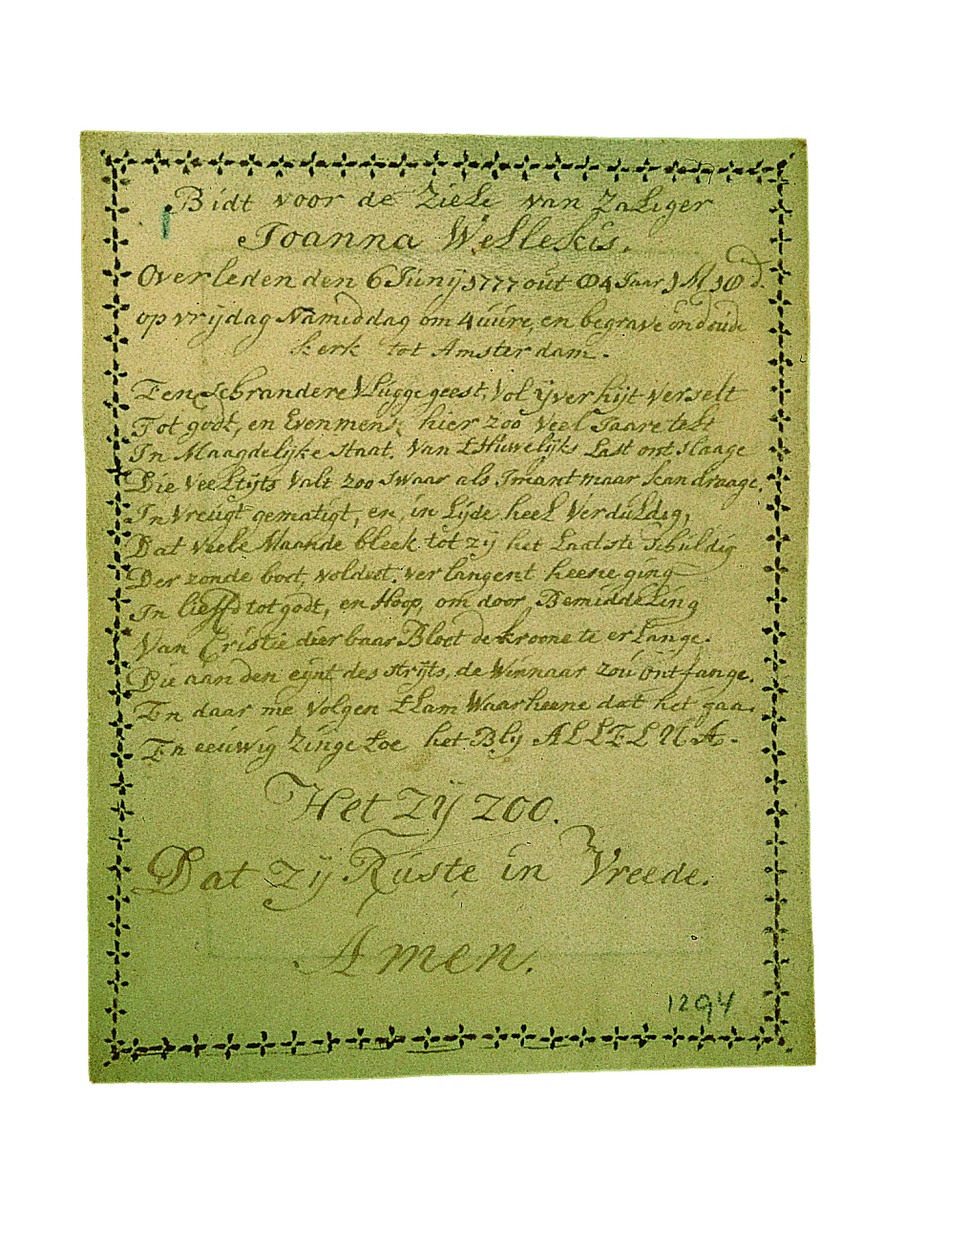 Bidt voor de Ziele van Zaliger
Joanna Wellekis.
Overleden den 6 Junij 1777 out 84 Jaar 1 M 18 d.
op vrijdag Namiddag om 4 üüre, en begrave in d'oude
kerk tot Amsterdam.
Een schrandere Vlugge geest, Vol ÿverhijt verselt
Tot godt, en Evenmens hier zoo veel Jaare telt
In Maagdelijke Staat, Van t Huwelijks Last ontslaage
Die Veeltijts Valt zoo swaar als Imant maar kan draage.
In Vreugt gematigt, en in Lijde heel Verduldig,
Dat veele Maande bleek tot zij het Laatste schuldig
Der zonde boet, voldoet. verlangent heene ging
In lieffd tot godt, en Hoop, om door Bemiddeling
Van Cristie dierbaar Bloet de kroone te erlange.
Die aan den eynt des strijts, de Winnaar zoú ontfange.
En daar me Volgen t Lam Waarheene dat het gaa.
En eeuwig Zinge toe het Blij ALLELUA.
Het Zÿ zoo.
Dat Zij Rüste in Vreede.
Amen.
1294